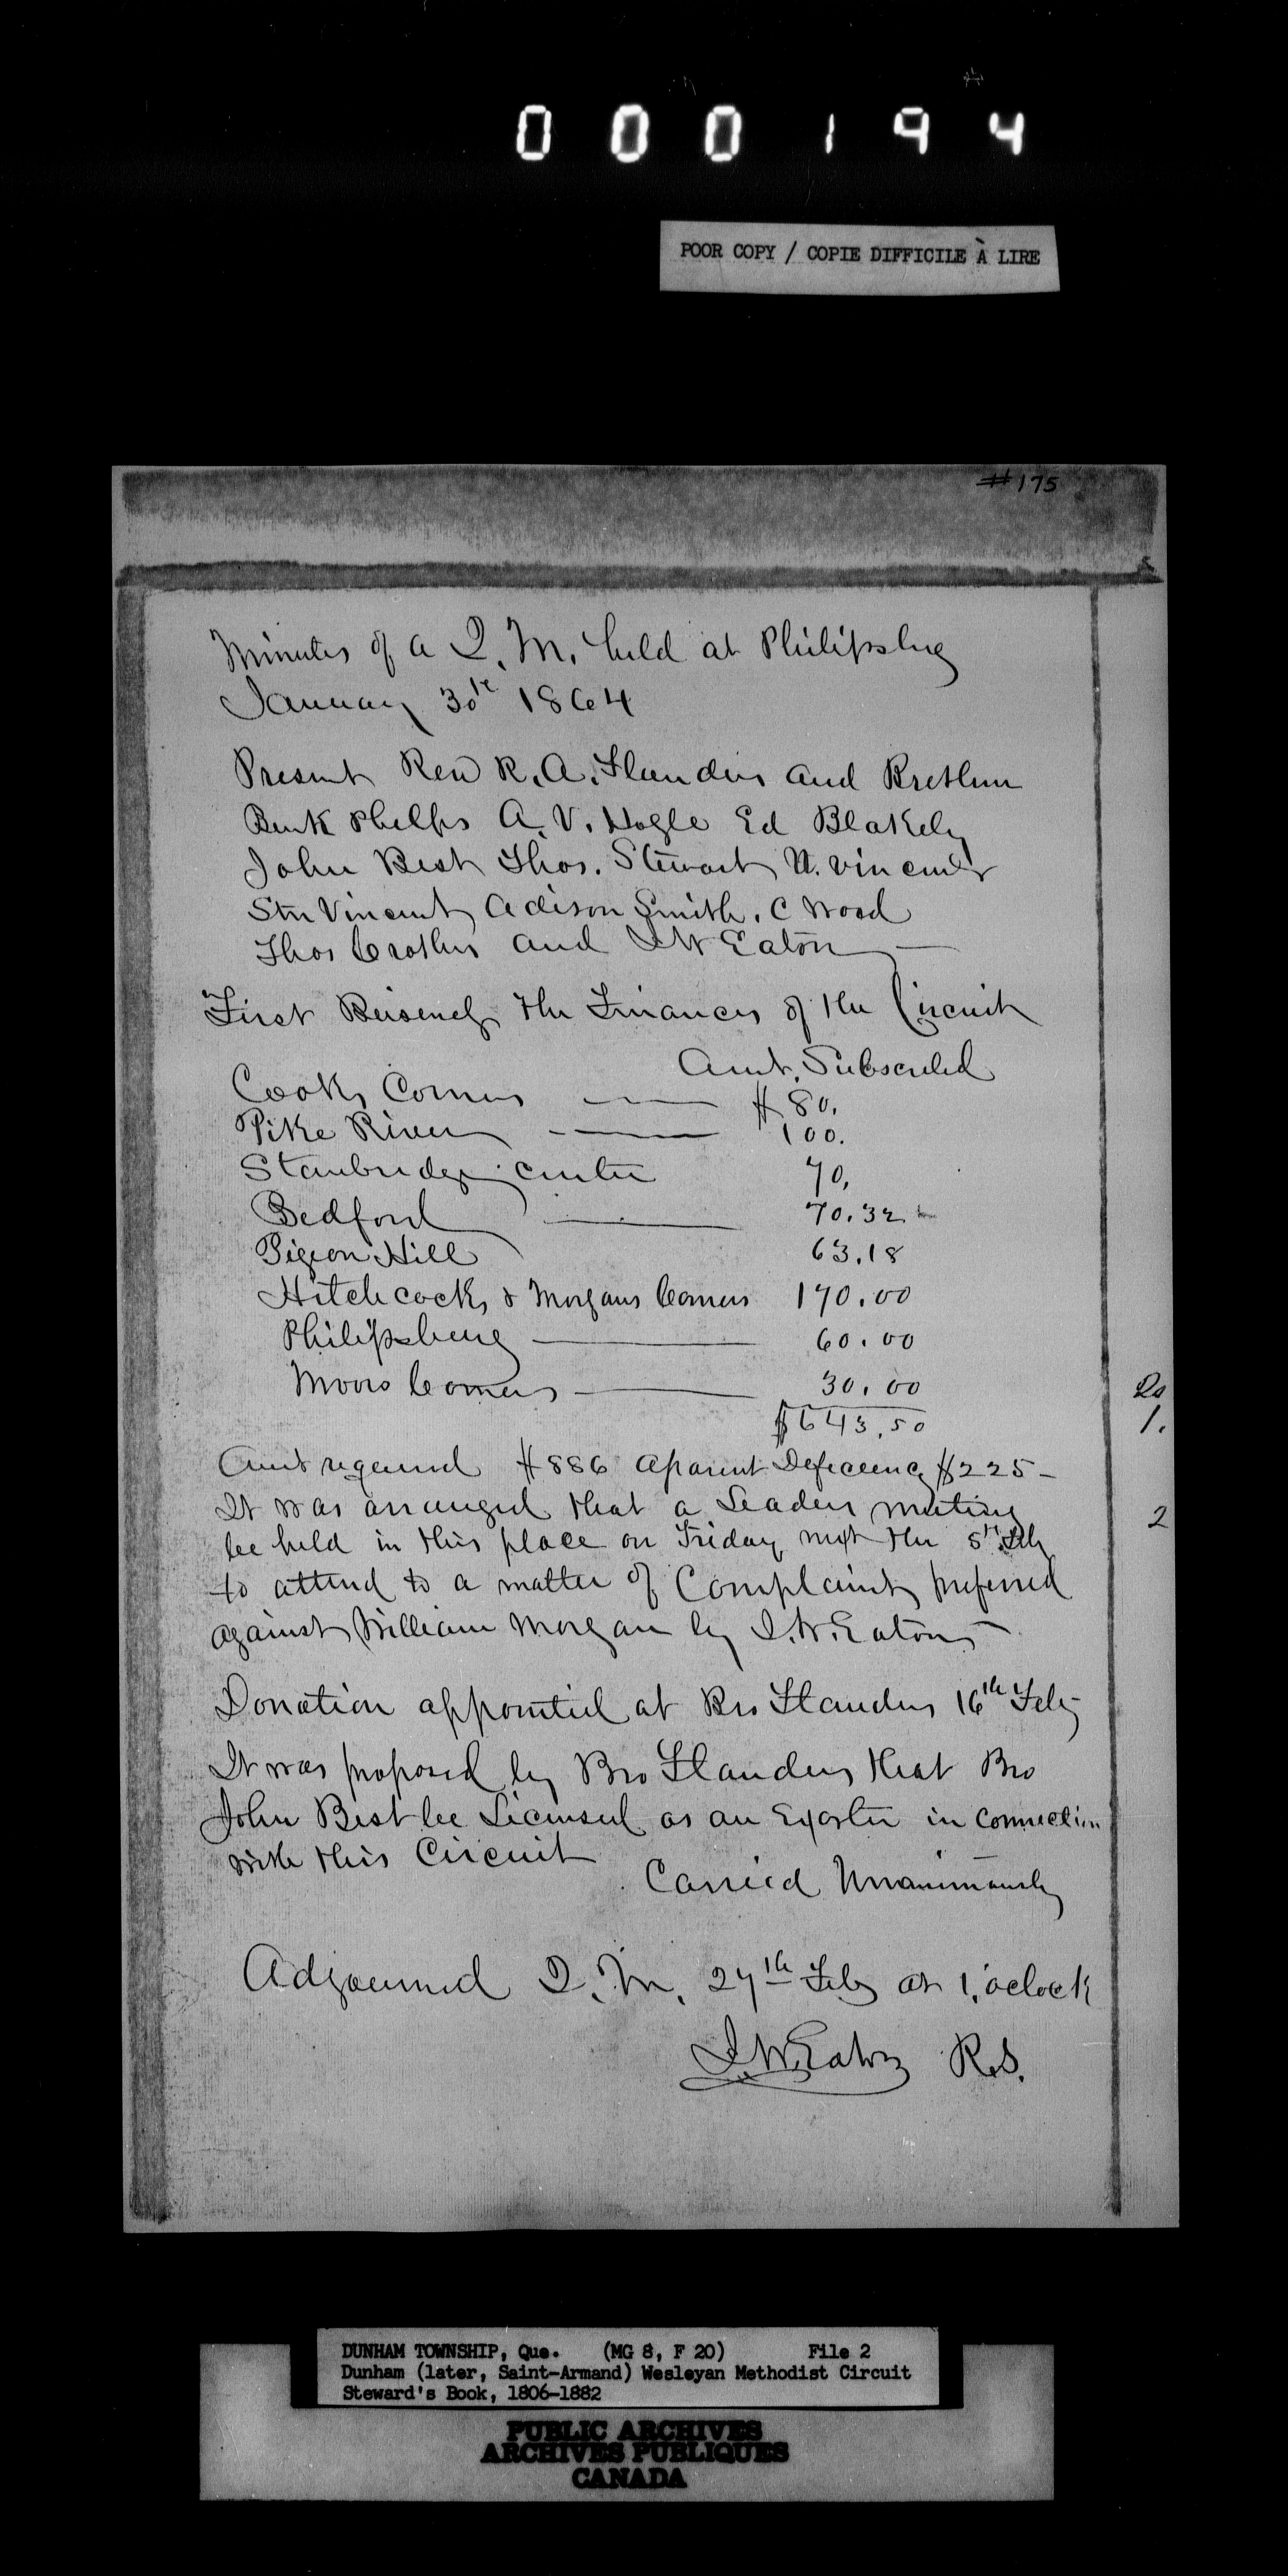 000194
POOR COPY / COPIE DIFFICILE À LIRE
#175
Minutes of a Q. M. held at Philipsbug
January 30th 1864
Present Rev R. A. Flanders and Brethern
Benk Phelps A. V. Hogle Ed Blakely
John Best Thos. Stewart N. Vincent
Stn Vincent Adison Smith. C Wood
Thos Crothers and I W Eaton —
First Buisenes, the Finances of the Circuit
Amt. Subscribed
Cooks Corners — $80.
Pike River — 100.
Stanbridge Center 70.
Bedford — 70.32
Pigeon Hill 63.18
Hitchcocks & Morgans Corners 170.00
Philipsburg — 60.00
Moors Corners — 30.00
$643.50
Amt required $886 aparent Defeceency $225 -
It was arranged that a Leaders meeting
be held in this place on Friday next the 5th Feb
to attend to a matter of Complaint preferred
against William Morgan by I. W. Eaton —
Donation appointed at Bro Flanders 16th Feby
It was proposed by Bro Flanders that Bro
John Best be Licensed as an Exorter in connection
with this Circuit
Carried Unanimously
Adjourned Q. M. 27th Feby at 1, oclock
I W Eaton R.S.
1.
2
DUNHAM TOWNSHIP, Que. (MG 8, F 20) File 2
Dunham (later, Saint-Armand) Wesleyan Methodist Circuit
Steward's Book, 1806-1882
PUBLIC ARCHIVES
ARCHIVES PUBLIQUES
CANADA